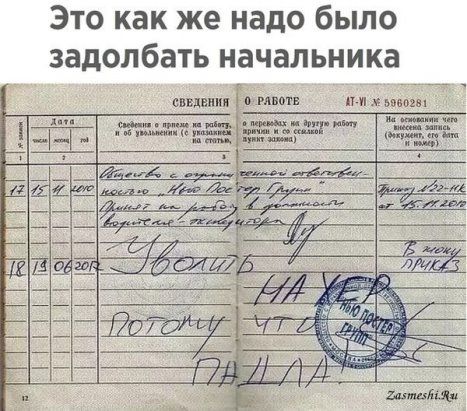 Это как же надо было
задолбать начальника
СВЕДЕНИЯ О РАБОТЕ
АТ-VI № 5960281
№ записи
Дата
число месяц год
Сведения о приеме на работу, о переводах на другую работу
и об увольнении (с указанием причин и со ссылкой
на статью, пункт закона)
На основании чего
внесена запись
(документ, его дата
и номер)
1 2 3 4
Общество с ограниченной ответствен-
17 15 11 2010 ностью "Нью Постер Групп" Приказ №22-НК
Принят на работу в должности от 15.11.2010
водителя-экспедитора
18 19 06 2012 Уволить В жопу
ПРИКАЗ
НА ХЕР
ПОТОМУ ЧТО
ПАДЛА!
НЬЮ ПОСТЕР
ГРУПП
12
Zasmeshi.Ru